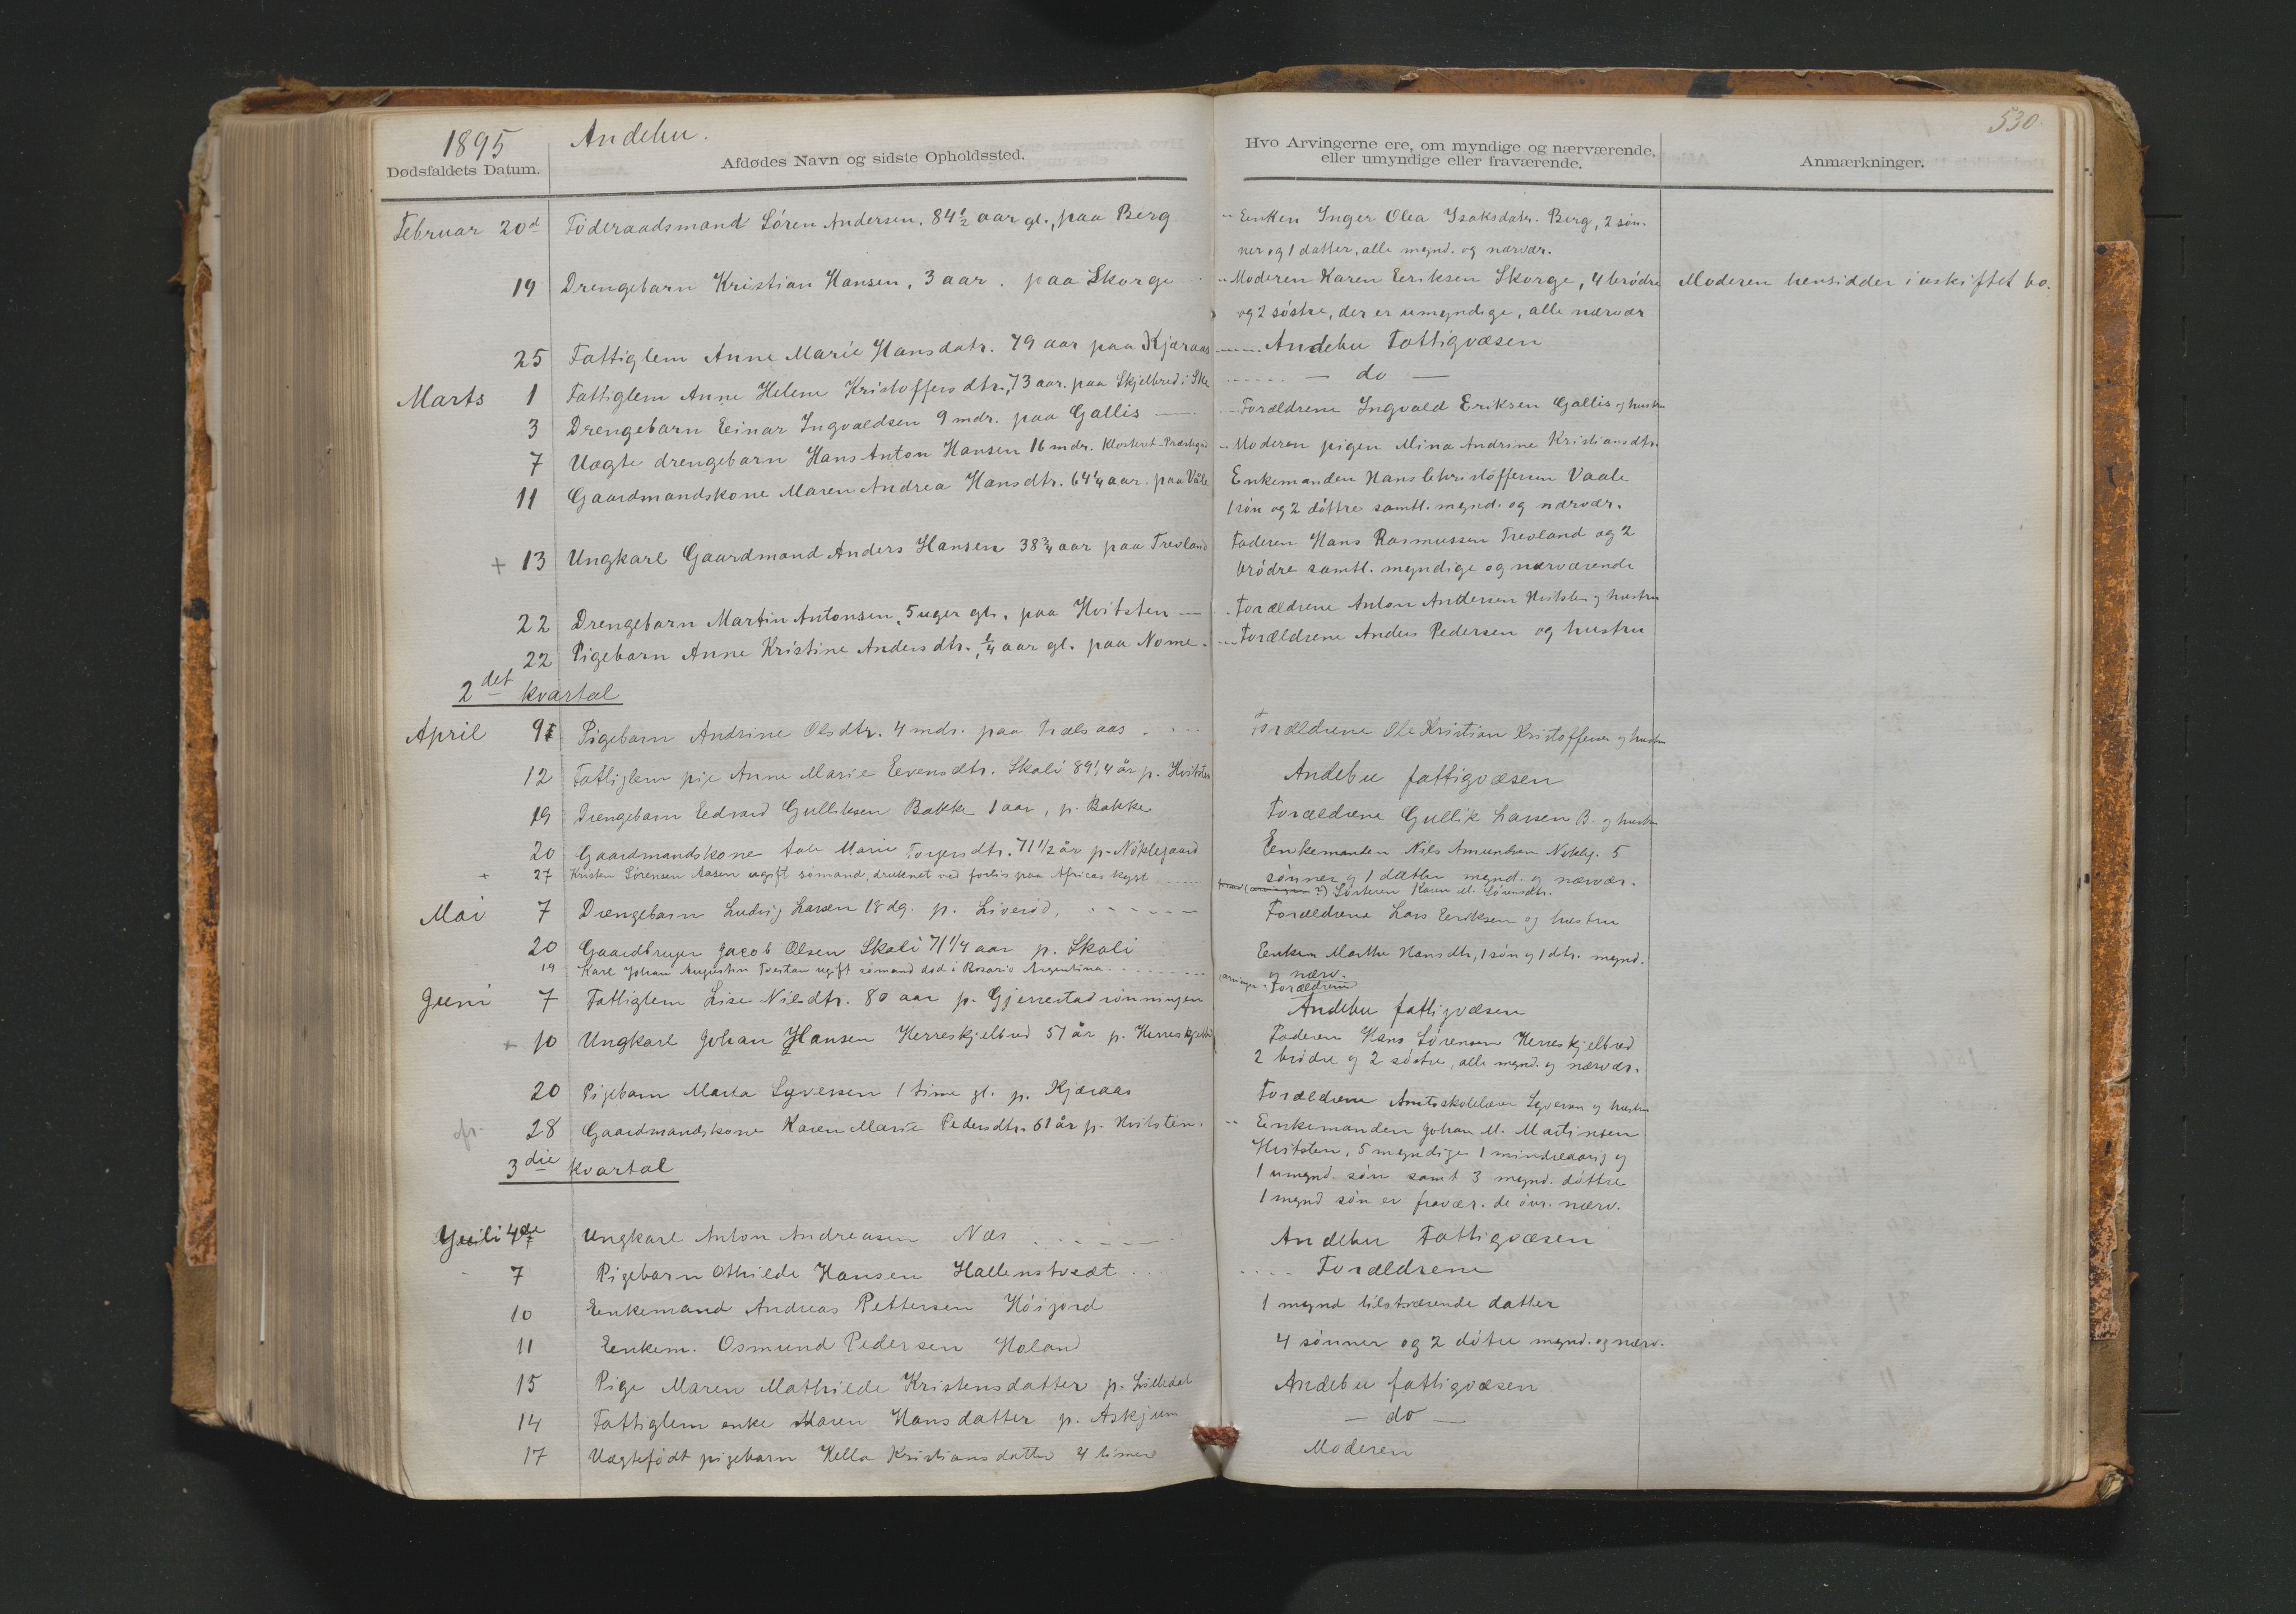 1895 Andebu.
530.
Dødsfaldets Datum. Afdødes Navn og sidste Opholdssted. Hvo Arvingerne ere, om myndige og nærværende, eller umyndige eller fraværende. Anmærkninger.
Februar 20d Föderaadsmand Sören Andersen, 84 1/2 aar gl., paa Berg Enken Inger Olea Isaksdatr. Berg, 2 søn-
ner og 1 datter, alle mynd. og nærvær.
19 Drengebarn Kristian Hansen, 3 aar. paa Skorge Moderen Karen Eriksen Skorge, 4 brödre Moderen hensidder i uskiftet bo.
og 2 söstre, der er umyndige, alle nærvær
25 Fattiglem Anne Marie Hansdatr. 79 aar paa Kjæraas Andebu Fattigvæsen
Marts 1 Fattiglem Anne Helene Kristoffersdtr, 73 aar. paa Skjelbred i Ske — do —
3 Drengebarn Einar Ingvaldsen 9 mdr. paa Gallis — Forældrene Ingvald Eriksen Gallis og hustru
7 Uægte drengebarn Hans Anton Hansen 16 mdr. Klosteret Præstegrd Moderen pigen Mina Andrine Kristiansdtr.
11 Gaardmandskone Maren Andrea Hansdtr. 64 1/4 aar. paa Våle Enkemanden Hans Christoffersen Vaale
1 søn og 2 döttre samtl. mynd. og nærvær.
+ 13 Ungkarl Gaardmand Anders Hansen 38 3/4 aar paa Trevland Faderen Hans Rasmussen Trevland og 2
brödre samtl. myndige og nærværende
22 Drengebarn Martin Antonsen, 5 uger gl. paa Hvitsten — Forældrene Anton Andersen Hvitsten og hustru
22 Pigebarn Anne Kristine Andersdtr. 1/4 aar gl. paa Nome. Forældrene Anders Pedersen og hustru
2det kvartal
April 9 Pigebarn Andrine Olsdtr. 4 mdr. paa Trælsaas Forældrene Ole Kristian Kristoffersen og hustru
12 Fattiglem pige Anne Marie Evensdtr. Skali 89 1/4 år p. Hvitsten Andebu fattigvæsen
19 Drengebarn Edvard Gulliksen Bakke 1 aar, p. Bakke Forældrene Gullik Larsen B. og hustru
20 Gaardmandskone Marie Torgersdtr. 71 1/2 år p. Nöklegaard Enkemanden Nils Amundsen Nøkleg. 5
sønner og 1 datter mynd. og nærvær.
+ 27 Kristen Sørensen Aasen ugift sømand, druknet ved forlis paa Africas kyst Søsteren Karen M. Sörensdtr.
Mai 7 Drengebarn Ludvig Larsen 18 dg. p. Liveröd, Forældrene Lars Eriksen og hustru
20 Gaardbruger Jacob Olsen Skali 71 1/4 aar p. Skali Enken Marthe Hansdtr, 1 søn og 1 dtr. mynd.
og nærv.
19 Karl Johan Augustin Tveitan ugift sømand död i Rosario Argentina Forældrene
Juni 7 Fattiglem Lise Nilsdtr. 80 aar p. Gjerrestadrönningen Andebu fattigvæsen
+ 10 Ungkarl Johan Hansen Herreskjelbred 51 år p. Herreskjelbred Faderen Hans Sørensen Herreskjelbred
2 brödre og 2 söstre, alle mynd. og nærvær.
20 Pigebarn Marta Syversen 1 time gl. p. Kjæraas Forældrene Amtsskolelærer Syversen og hustru
28 Gaardmandskone Karen Marie Pedersdtr. 61 år p. Hvitsten. Enkemanden Johan M. Martinsen
Hvitsten, 5 myndige 1 mindreaarig og
3die kvartal
1 umynd. søn samt 3 mynd. döttre
1 mynd søn er fravær. de övr. nærv.
Juli 4de Ungkarl Anton Andreasen Næs Andebu Fattigvæsen
7 Pigebarn Othilde Hansen Hallenstvedt Forældrene
10 Enkemand Andreas Pettersen Höijord 1 mynd tilstværende datter
11 Enkem. Osmund Pedersen Holand 4 sönner og 2 dötre mynd. og nærv.
15 Pige Maren Mathilde Kristensdatter p. Lilledal Andebu fattigvæsen
14 Fattiglem enke Maren Hansdatter p. Askjum — do —
17 Uægtefödt pigebarn Hella Kristiansdatter 4 timer Moderen